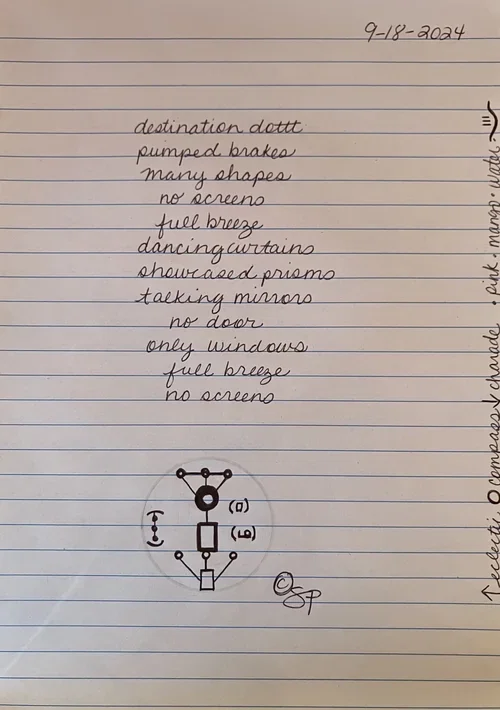 9-18-2024
destination dottt
pumped brakes
many shapes
no screens
full breeze
dancing curtains
showcased prisms
talking mirrors
no door
only windows
full breeze
no screens
© SP
compasses
charade · pink · mango · water